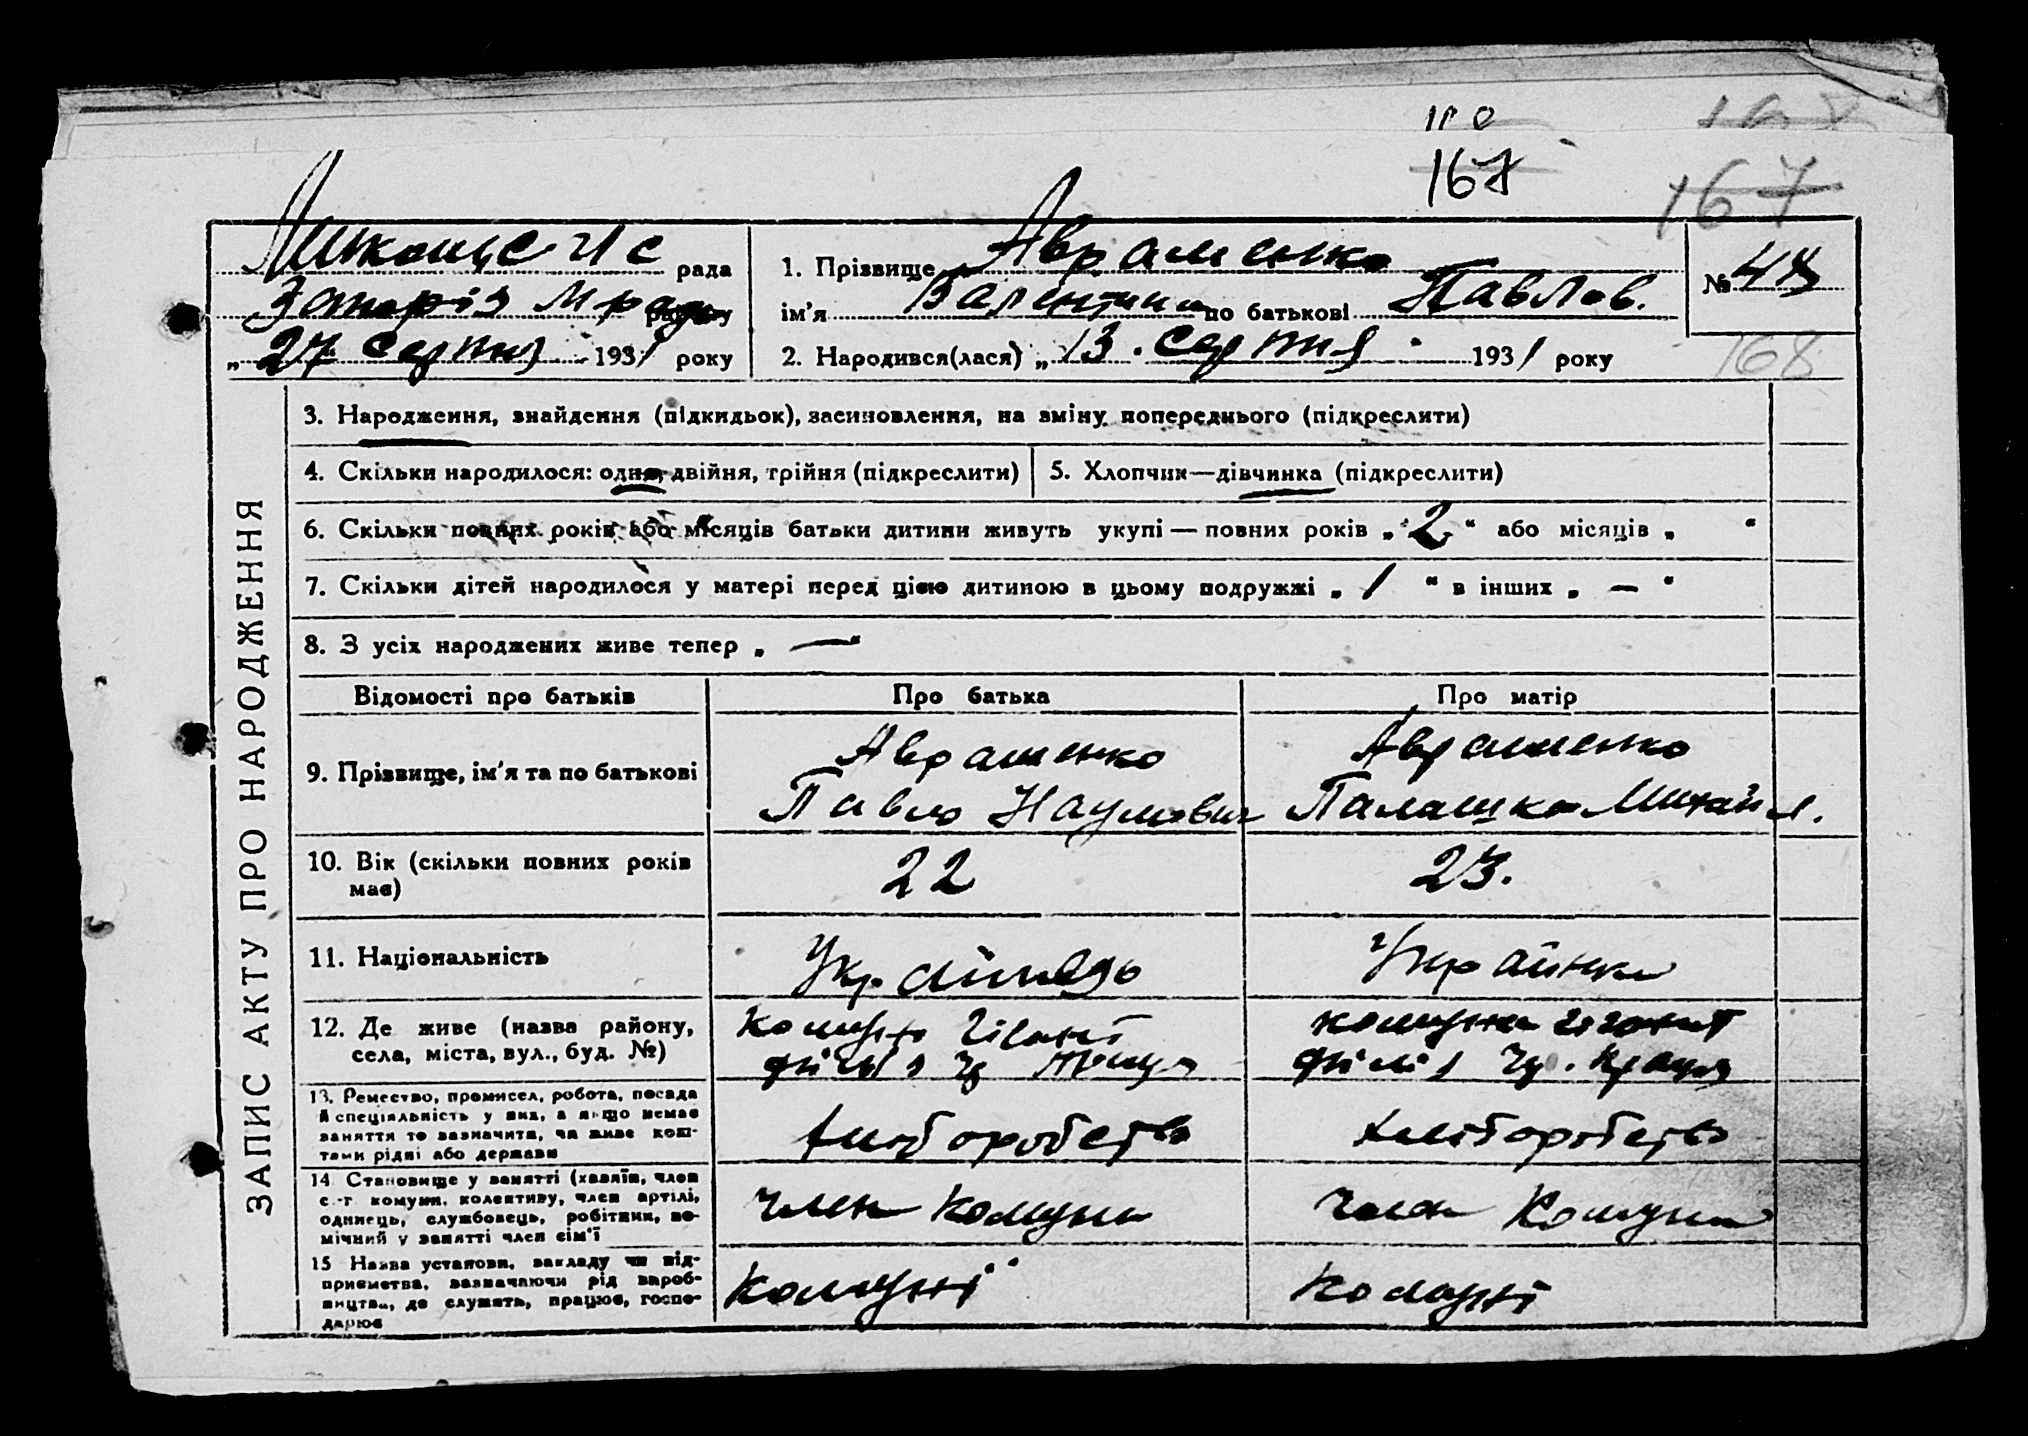 167
167
168
рада
Запоріз м рада
„ 27 серпня 1931 року
1. Прізвище Авраменко
ім'я Валентина по батькові Павлов.
2. Народився(лася) „ 13. серпня 1931 року
№
168
ЗАПИС АКТУ ПРО НАРОДЖЕННЯ
3. Народження, знайдення (підкидьок), засиновлення, на зміну попереднього (підкреслити)
4. Скільки народилося: одно, двійня, трійня (підкреслити)
5. Хлопчик—дівчинка (підкреслити)
6. Скільки повних років або місяців батьки дитини живуть укупі — повних років „ 2 “ або місяців „ “
7. Скільки дітей народилося у матері перед цією дитиною в цьому подружжі „ 1 “ в інших „ — “
8. З усіх народжених живе тепер „ — “
Відомості про батьків
Про батька
Про матір
9. Прізвище, ім'я та по батькові
Авраменко
Павло Наумович
Авраменко
Палашка Михайл.
10. Вік (скільки повних років
має)
22
23.
11. Національність
Українець
Українка
12. Де живе (назва району,
села, міста, вул., буд. №)
Комуна Гігант
філія
комуна гігант
філія
13. Ремество, промисел, робота, посада
й спеціяльність у них, а якщо немає
заняття то зазначити, чи живе кош-
тами рідні або держави
хліборобство
хліборобство
14. Становище у занятті (хазяїн, член
с.-г. комуни, колективу, член артілі,
одинець, службовець, робітник, по-
мічний у занятті член сім'ї
член комуни
член Комуни
15 Назва установи, закладу чи під-
приємства, зазначаючи рід вироб-
ництва, де служить, працює, госпо-
дарює
комуні
комуні